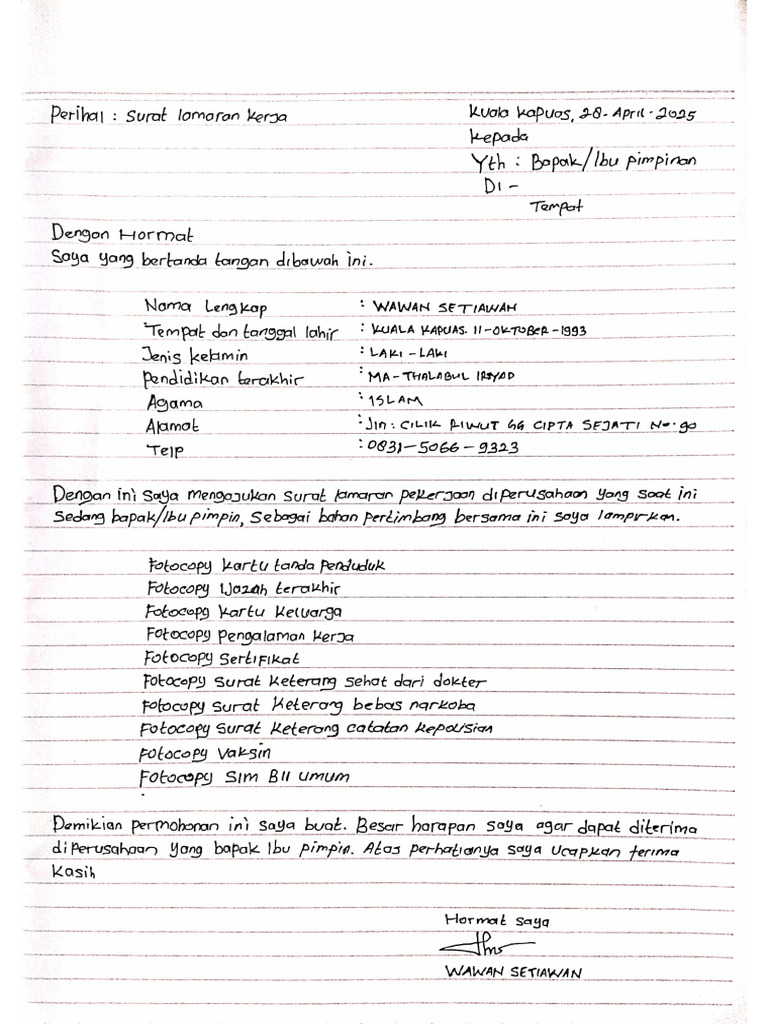 Perihal : Surat lamaran kerja
Kuala Kapuas, 28-April-2025
Kepada
Yth : Bapak/Ibu pimpinan
Di -
Tempat
Dengan Hormat
Saya yang bertanda tangan dibawah ini.
Nama Lengkap : WAWAN SETIAWAN
Tempat dan tanggal lahir : KUALA KAPUAS. 11-OKTOBER-1993
Jenis kelamin : LAKI-LAKI
Pendidikan terakhir : MA-THALABUL IRSYAD
Agama : ISLAM
Alamat : Jln: CILIK RIWUT GG CIPTA SEJATI No.90
Telp : 0831-5066-9323
Dengan ini saya mengajukan surat lamaran pekerjaan diperusahaan yang saat ini
Sedang bapak/Ibu pimpin, Sebagai bahan pertimbang bersama ini saya lampirkan.
Fotocopy kartu tanda penduduk
Fotocopy Ijazah terakhir
Fotocopy kartu keluarga
Fotocopy pengalaman kerja
Fotocopy Sertifikat
Fotocopy Surat keterang sehat dari dokter
Fotocopy Surat keterang bebas narkoba
Fotocopy Surat keterang catatan kepolisian
Fotocopy Vaksin
Fotocopy SIM BII UMUM
Demikian permohonan ini saya buat. Besar harapan saya agar dapat diterima
diperusahaan yang bapak Ibu pimpin. Atas perhatianya saya ucapkan terima
kasih
Hormat saya
WAWAN SETIAWAN